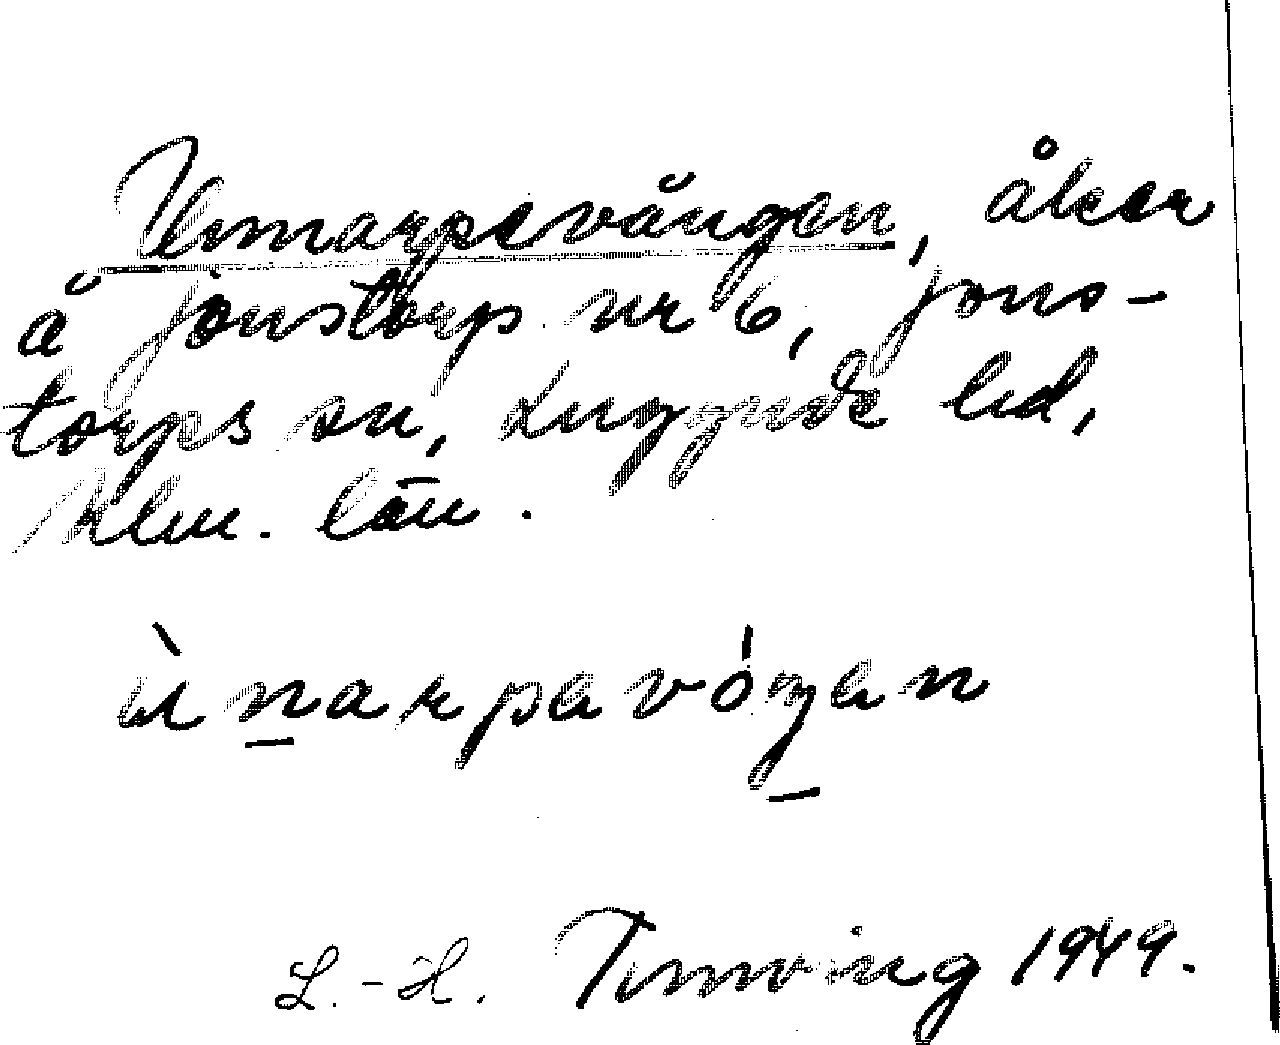 Unnarpevången, åker
å Jonstorp nr 6, Jons-
torps sn, Luggude hd,
Mlm. län.
ùn̲arpəvóŋ̲ən
L.-H. Tunving 1949.